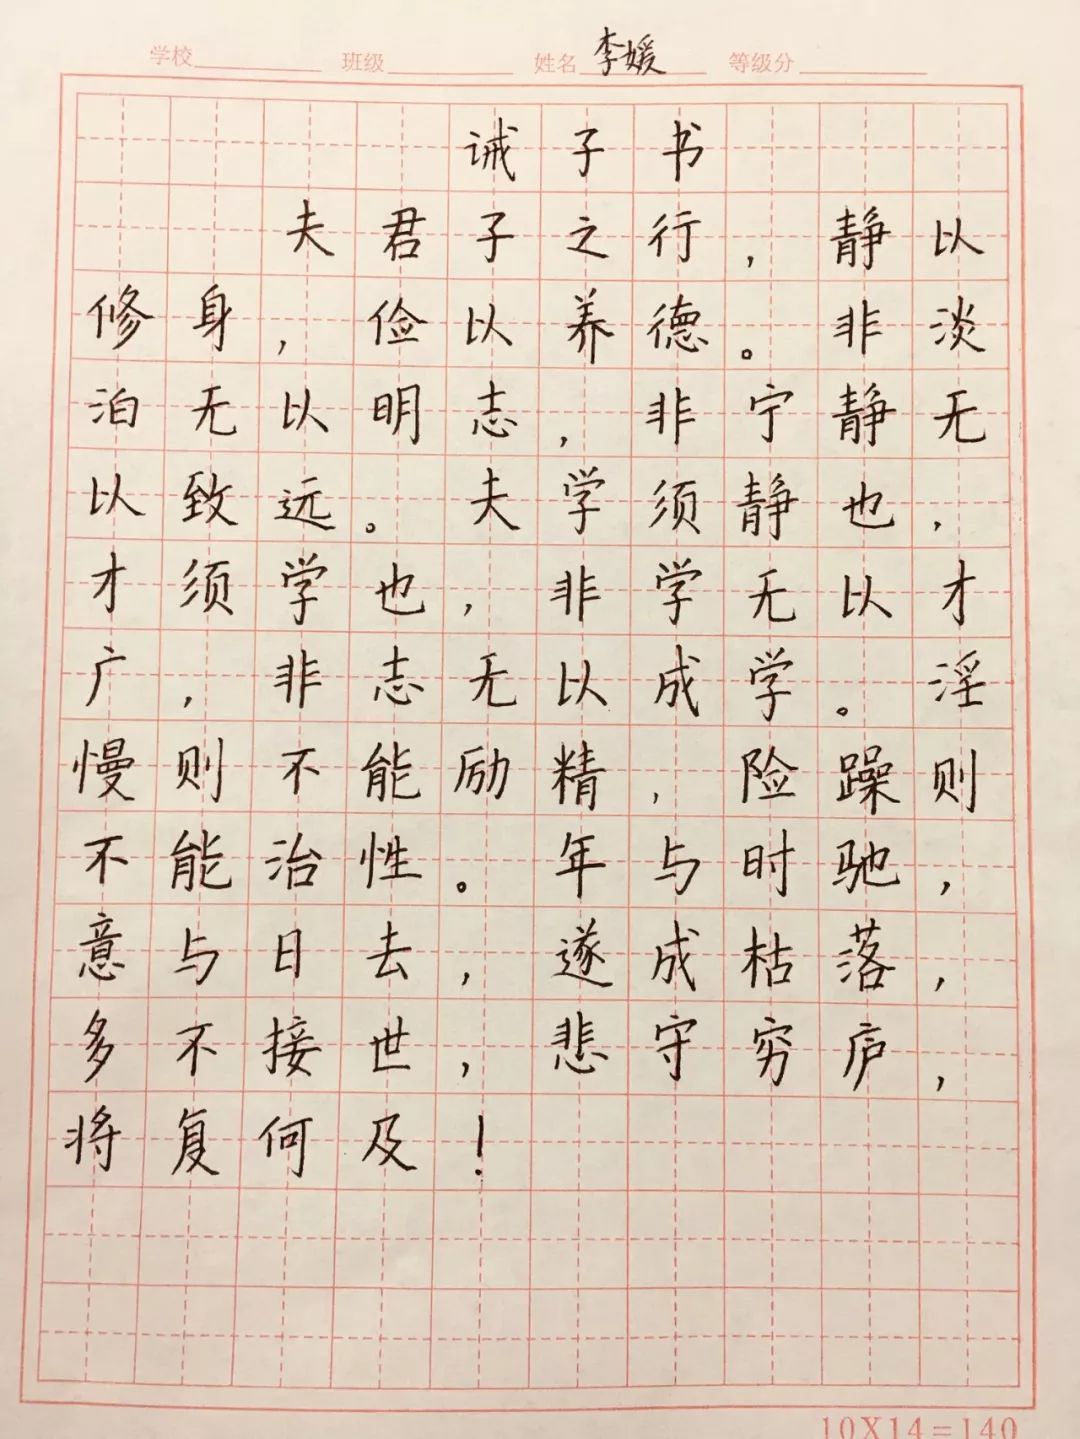 学校 班级 姓名 李媛 等级分
诫子书
夫君子之行，静以
修身，俭以养德。非淡
泊无以明志，非宁静无
以致远。夫学须静也，
才须学也，非学无以才
广，非志无以成学。淫
慢则不能励精，险躁则
不能治性。年与时驰，
意与日去，遂成枯落，
多不接世，悲守穷庐，
将复何及！
10X14=140